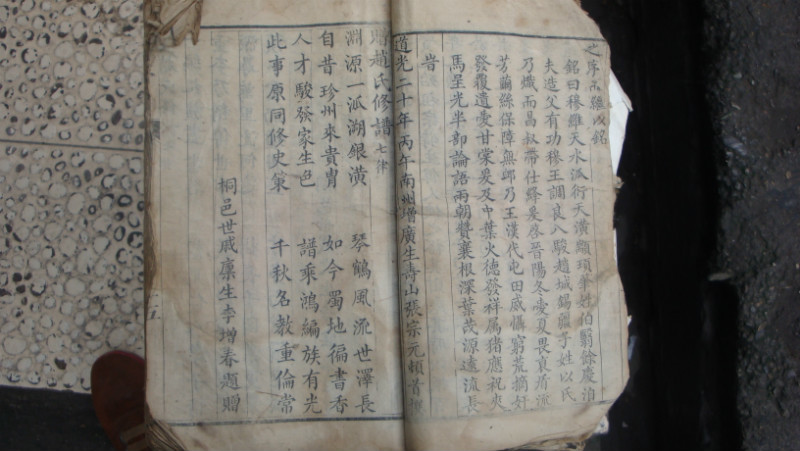 之序而雖以銘
銘曰穆維天水派衍天潢顓頊肇姓伯翳餘慶治
夫造父有功穆王調良八駿趙城錫疆子姓以氏
乃熾而昌叔帶仕絳爰啓晉陽冬愛夏畏衰盾流
芳繭絲保障無卹乃王漢代屯田威懾窮荒摘奸
發覆遺愛甘棠爰及中葉火德發祥属猪應祝夾
馬呈光半部論語兩朝贊襄根深葉茂源遠流長
昔
道光二十年丙午南州增廣生壽山張宗元頓首撰
贈趙氏修譜七律
淵源一派溯銀潢 琴鶴風流世澤長
自昔珍州來貴胄 如今蜀地徧書香
人才駿發家生色 譜乘鴻編族有光
此事原同修史策 千秋名教重倫常
桐邑世戚廪生李增春題贈